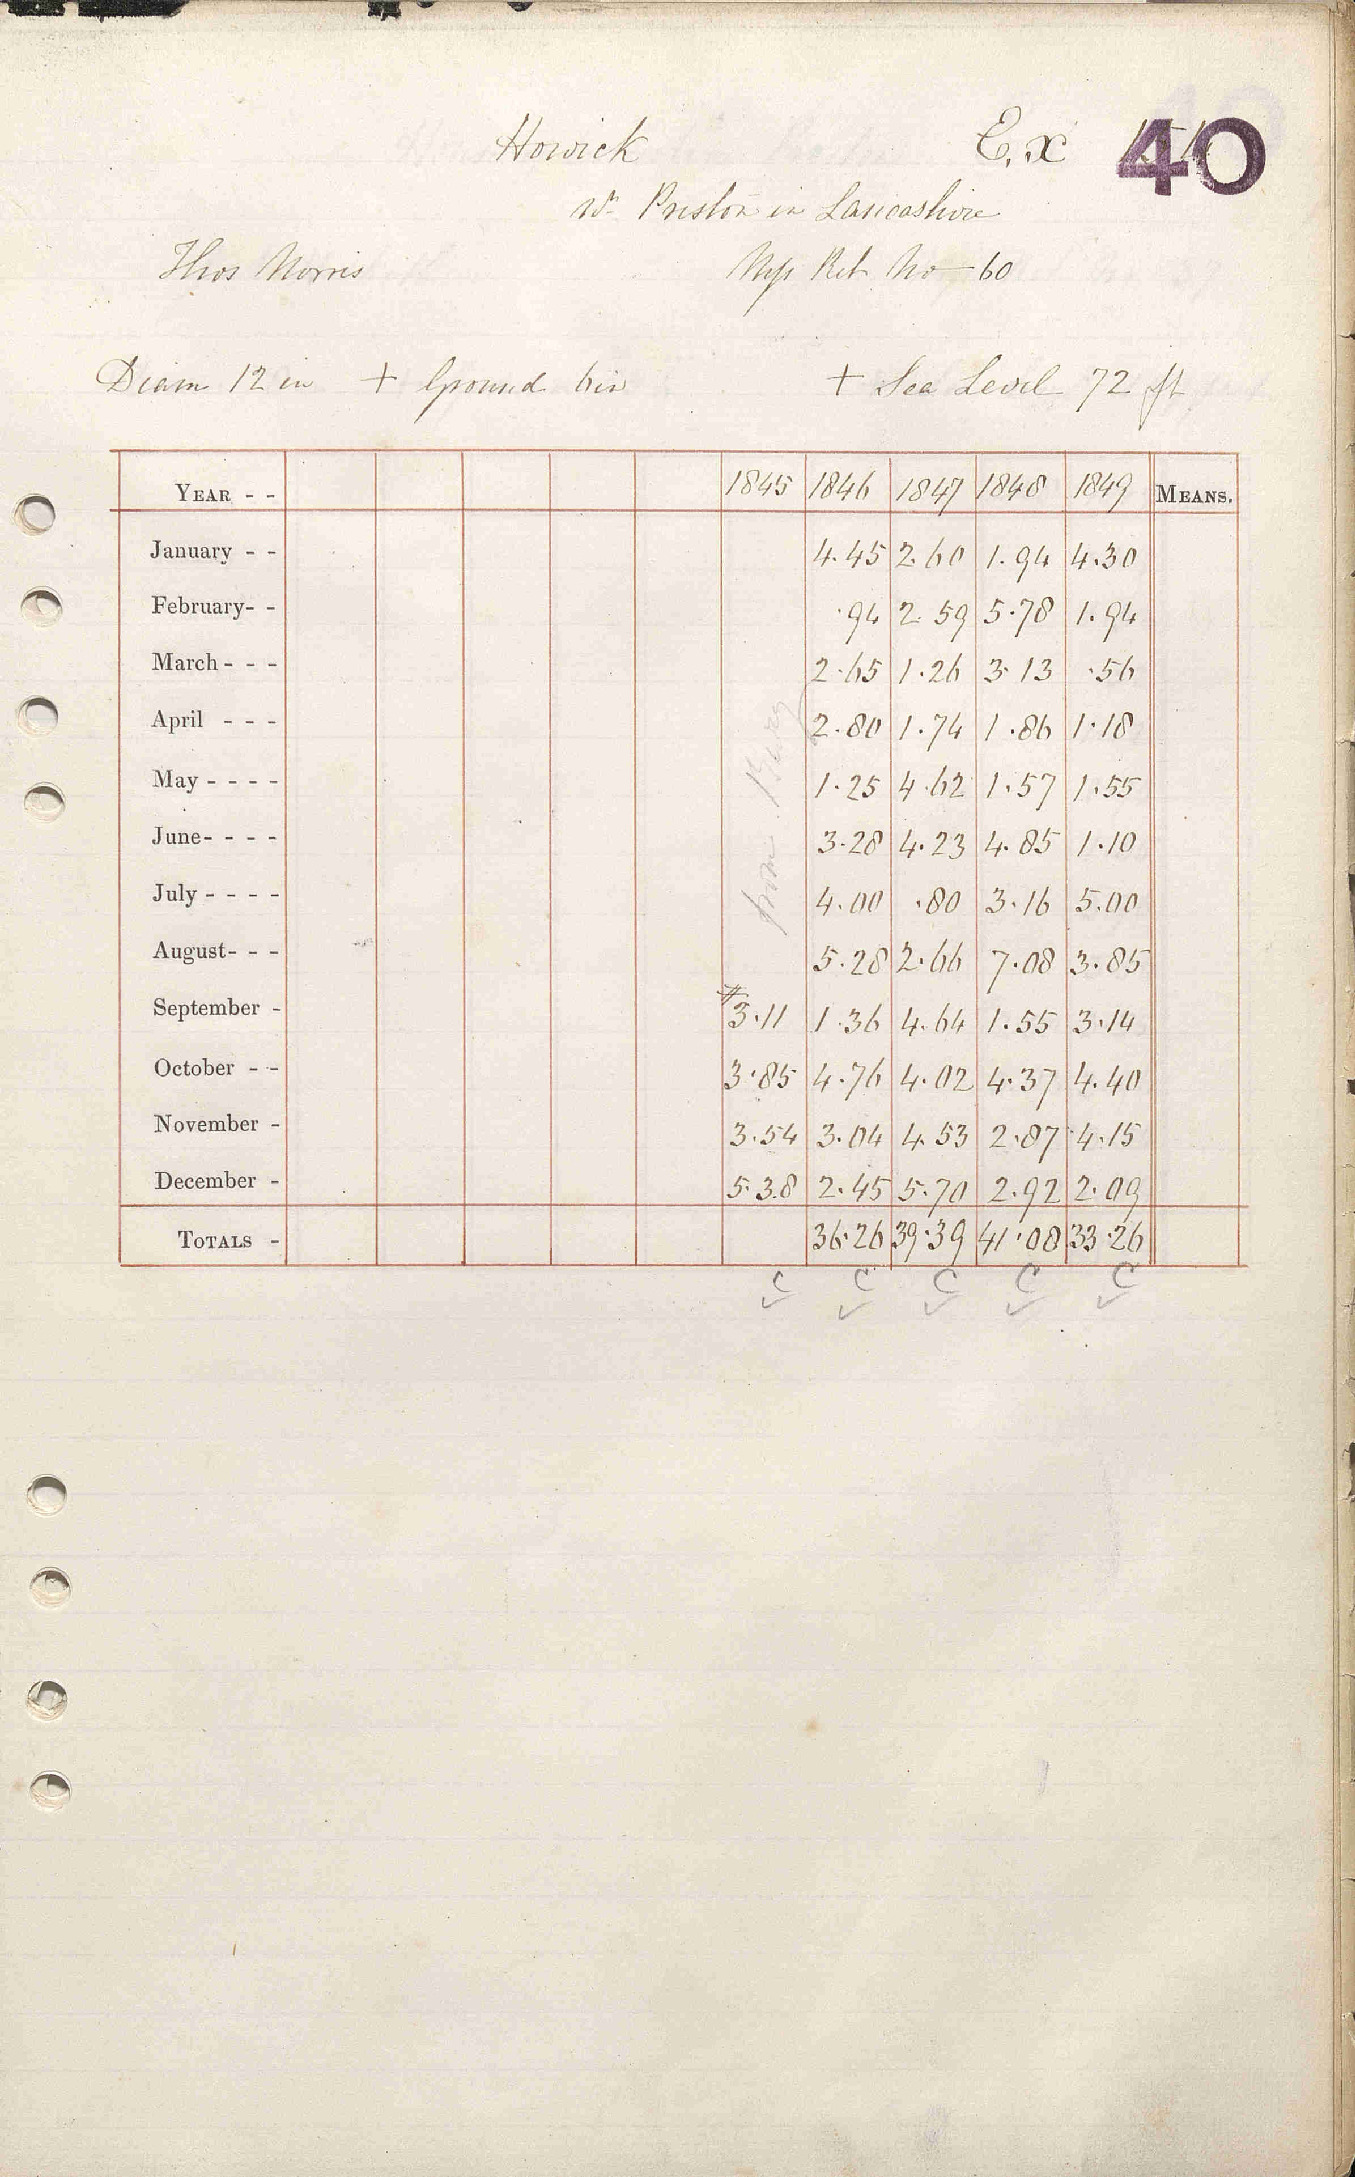 Howick E.x 40
nr Preston in Lancashire
Thos Norris Mys Ret No 60
Diam 12 in + Ground 6in + Sea Level 72 ft
YEAR - - 1845 1846 1847 1848 1849 MEANS.
January - - 4.45 2.60 1.94 4.30
February - - .94 2.59 5.78 1.94
March - - - 2.65 1.26 3.13 .56
April - - - 2.80 1.74 1.86 1.18
May - - - - 1.25 4.62 1.57 1.55
June - - - - 3.28 4.23 4.85 1.10
July - - - - 4.00 .80 3.16 5.00
August - - - 5.28 2.66 7.08 3.85
September - 3.11 1.36 4.64 1.55 3.14
October - - 3.85 4.76 4.02 4.37 4.40
November - 3.54 3.04 4.53 2.87 4.15
December - 5.38 2.45 5.70 2.92 2.09
TOTALS - 36.26 39.39 41.08 33.26
C C C C C
from